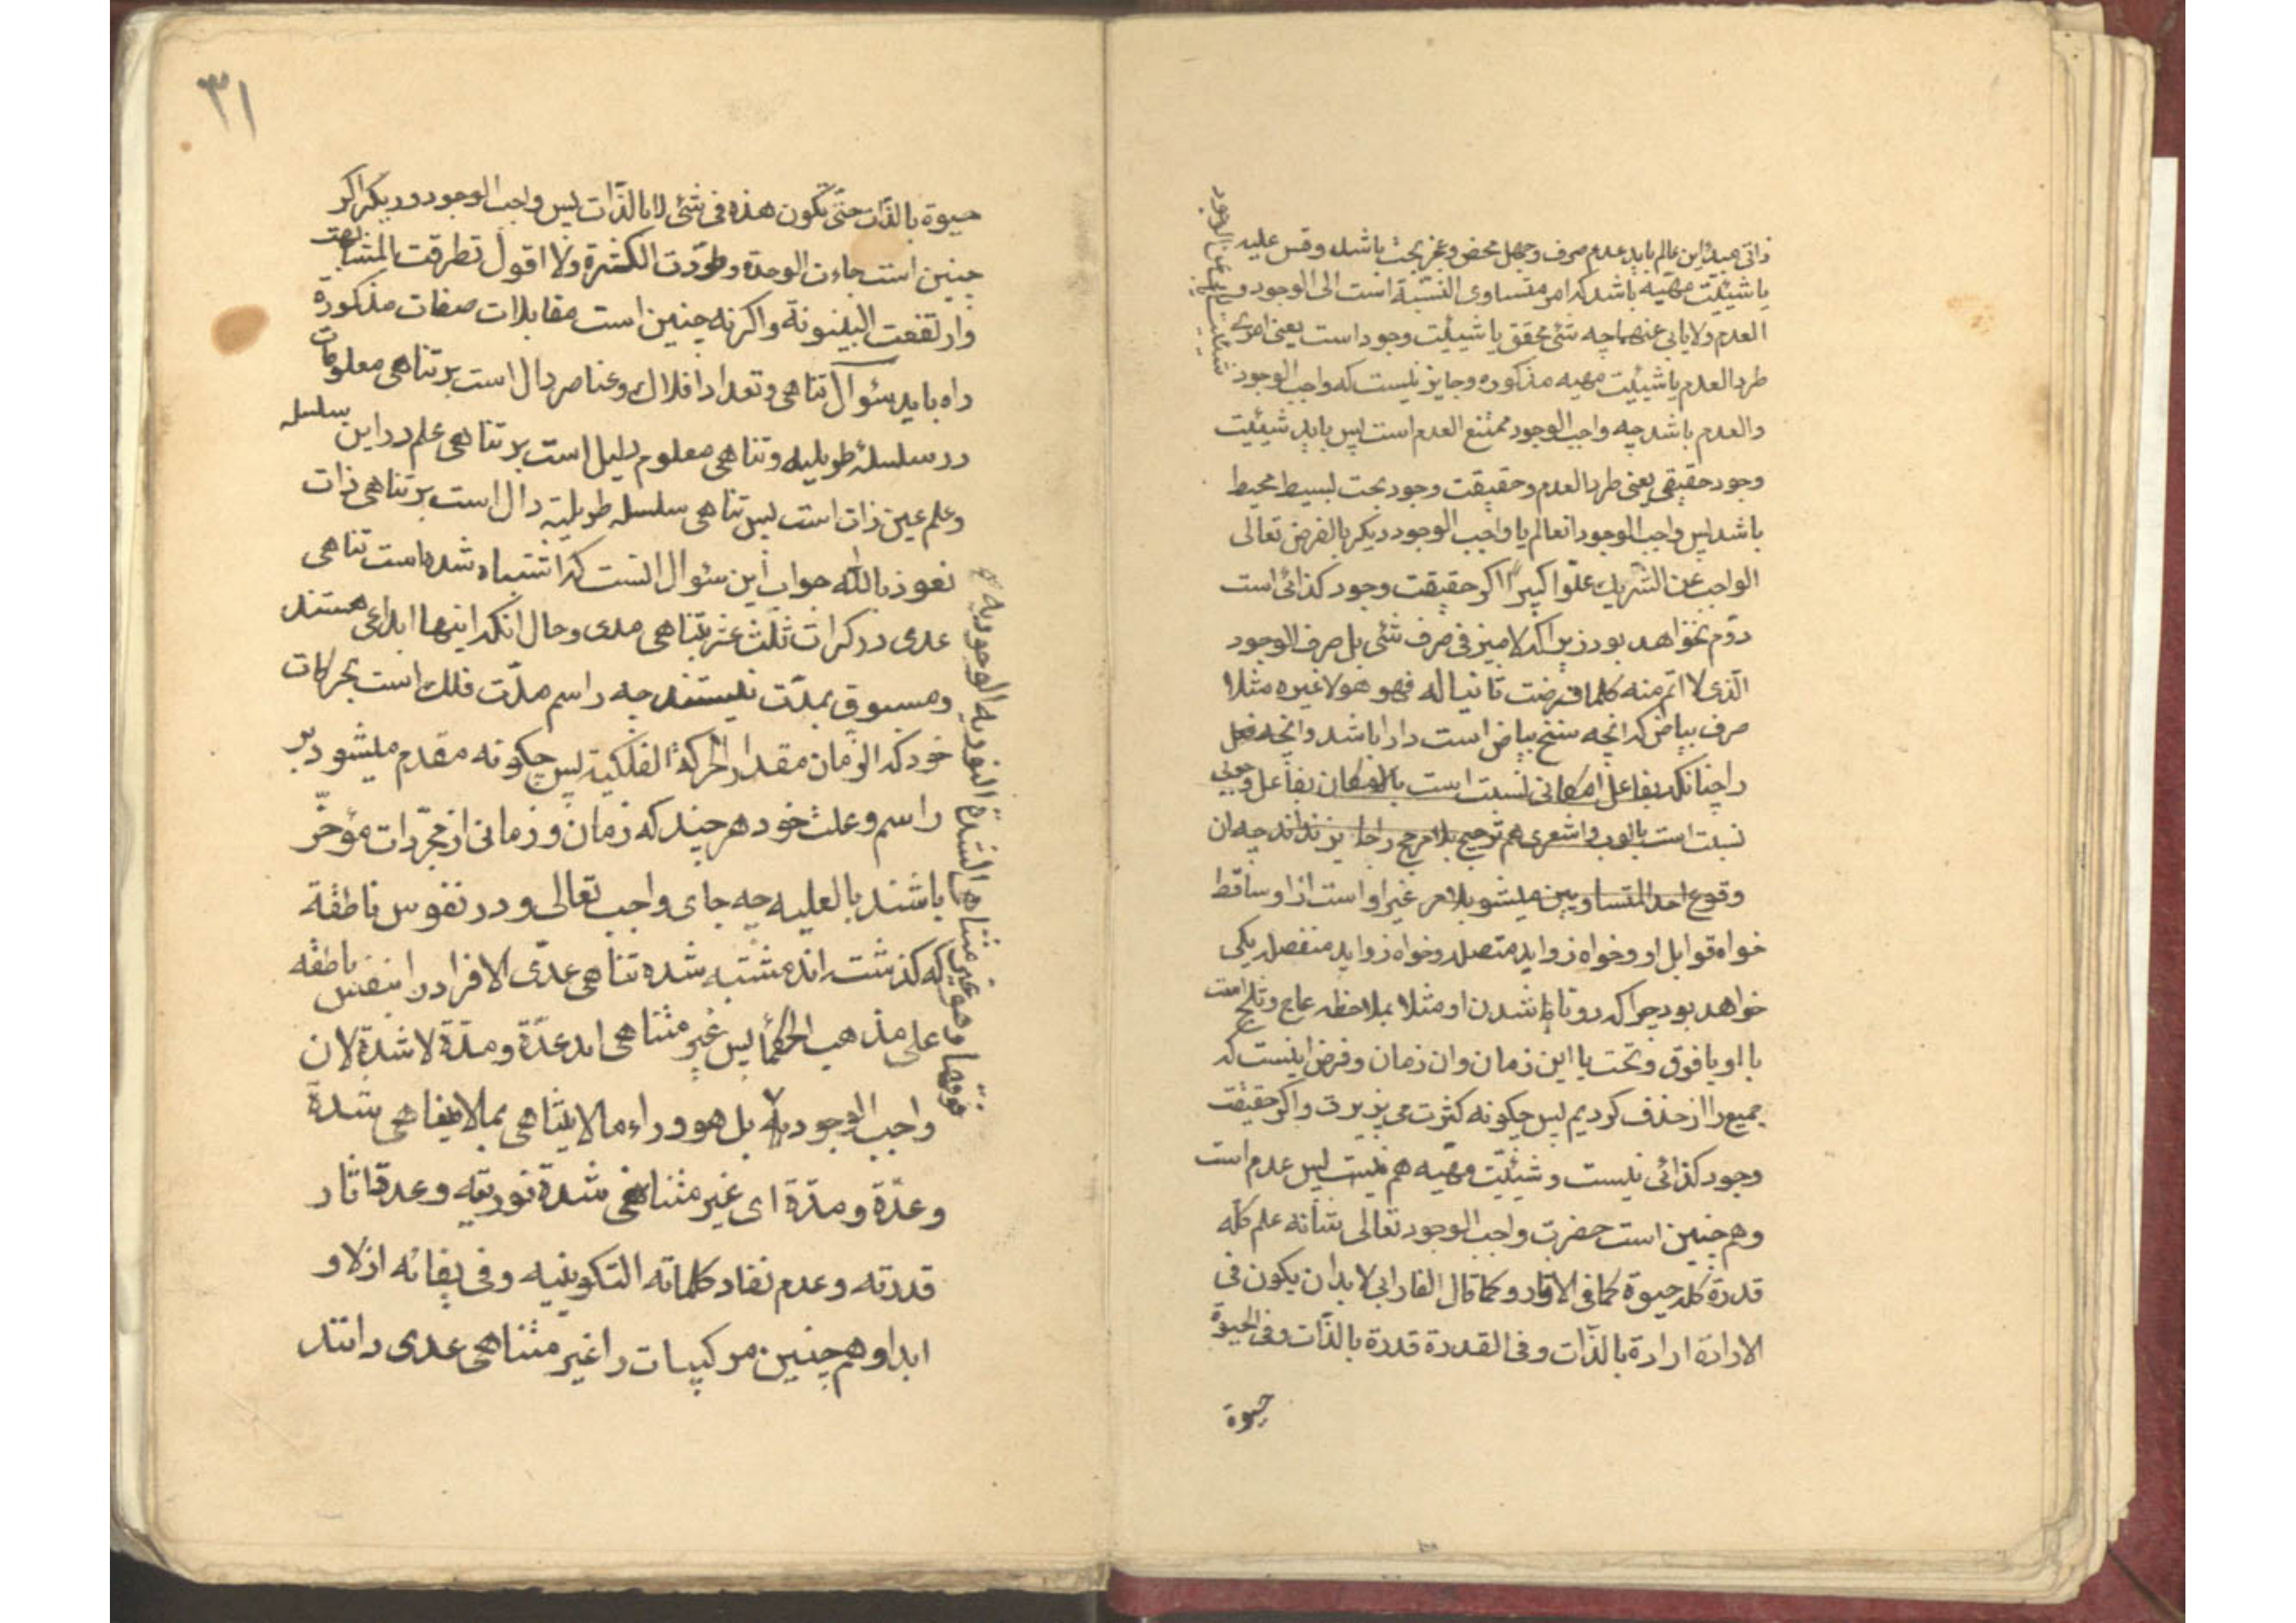 ذاتی مبدء این عالم باید عدم صرف وجهل محض وعجز بحت باشد وقس علیه
یا شیئیّت مهیّه باشد که امر متساوی النسبة است الی الوجود و
العدم ولایابی عنهما چه شئ محقق یا شیئیّت وجود است یعنی امری
طرد العدم یا شیئیّت مهیه مذکوره وجایز نیست که واجب الوجود
والعدم باشد چه واجب الوجود ممتنع العدم است پس باید شیئیّت
وجود حقیقی یعنی طرد العدم وحقیقت وجود بحت بسیط محیط
باشد پس واجب الوجود انعالم یا واجب الوجود دیکر بالفرض تعالی
الواجب عن الشریك علّوا کبیراً اکر حقیقت وجود کذائی است
دوّم نخواهد بود زیرا که لا میز فی صرف شئی بل صرف الوجود
الّذی لا اتم منه کلما فرضت ثانیا له فهو هو لا غیره مثلا
صرف بیاض که انچه سنخ بیاض است دارا باشد وانچه
را چنانکه بفاعل امکانی نسبت است بالامکان بفاعل وجوبی
نسبت است بالوجوب واشعری هم ترجیح بلا مرجح را جایز نداند چه ان
وقوع احد المتساویین میشود بلا مرجح غیر او است از او ساقط
خواه قوابل او وخواه زواید متصله وخواه زواید منفصله یکی
خواهد بود چرا که دو تا شدن او مثلا بملاحظه عاج وثلج است
با او یا فوق وتحت یا این زمان وان زمان وفرض اینست که
جمیع را از حذف کردیم پس چکونه کثرت می پذیرد واکر حقیقت
وجود کذائی نیست وشیئیّت مهیّه هم نیست پس عدم است
وهم چنین است حضرت واجب الوجود تعالی شأنه علم کلّه
قدرة کله حیوة کما فی الاثار وکما قال الفارابی لابد ان یکون فی
الارادة ارادة بالذّات وفی القدرة قدرة بالذّات وفی الحیوة
حیوة
٣١
حیوة بالذّات حتی تکون هذه فی شئی لا بالذّات پس واجب الوجود دیکر اکر
چنین است جاءت الوحدة وطردت الکثرة ولا اقول تطرقت المشابهت
وارتفعت البینونة واکر نه چنین است مقابلات صفات مذکورة
راه باید سئوال تناهی وتعداد افلاك وعناصر دال است بر تناهی معلومات
در سلسلهٔ طولیه وتناهی معلوم دلیل است بر تناهی علم در این سلسله
وعلم عین ذات است پس تناهی سلسله طولیّه دال است بر تناهی ذات
نعوذ بالله جواب این سئوال انست که اشتباه شده است تناهی
عدی در کرات ثلث عشر بتناهی مدی وحال انکه اینها ابداعی هستند
ومسبوق بمدّت نیستند چه راسم مدّت فلك است بحرکات
خود که الزمان مقدار الحرکة الفلکیة پس چکونه مقدم میشود بر
راسم وعلت خود هر چند که زمان وزمانی از مجرّدات مؤخّر
باشند بالعلیه چه جای واجب تعالی ودر نفوس ناطقة
که کذشته اند مشتبه شده تناهی عدّی الافراد را بنفس ناطقه
علی مذهب الحکما پس غیر متناهی اند عدّة ومدّة لا شدّة لان
واجب الوجود بل هو وراء ما لا یتناهی بما لا یتناهی شدة
وعدّة ومدّة ای غیر متناهی شدة نوریّته وعدة اثار
قدرته وعدم نفاد کلماته التکوینیه وفی بقائه ازلا و
ابدا وهم چنین مرکبات را غیر متناهی عدی دانند
فوقها ما هو غیر متناه الشدة النوریه الوجودیه